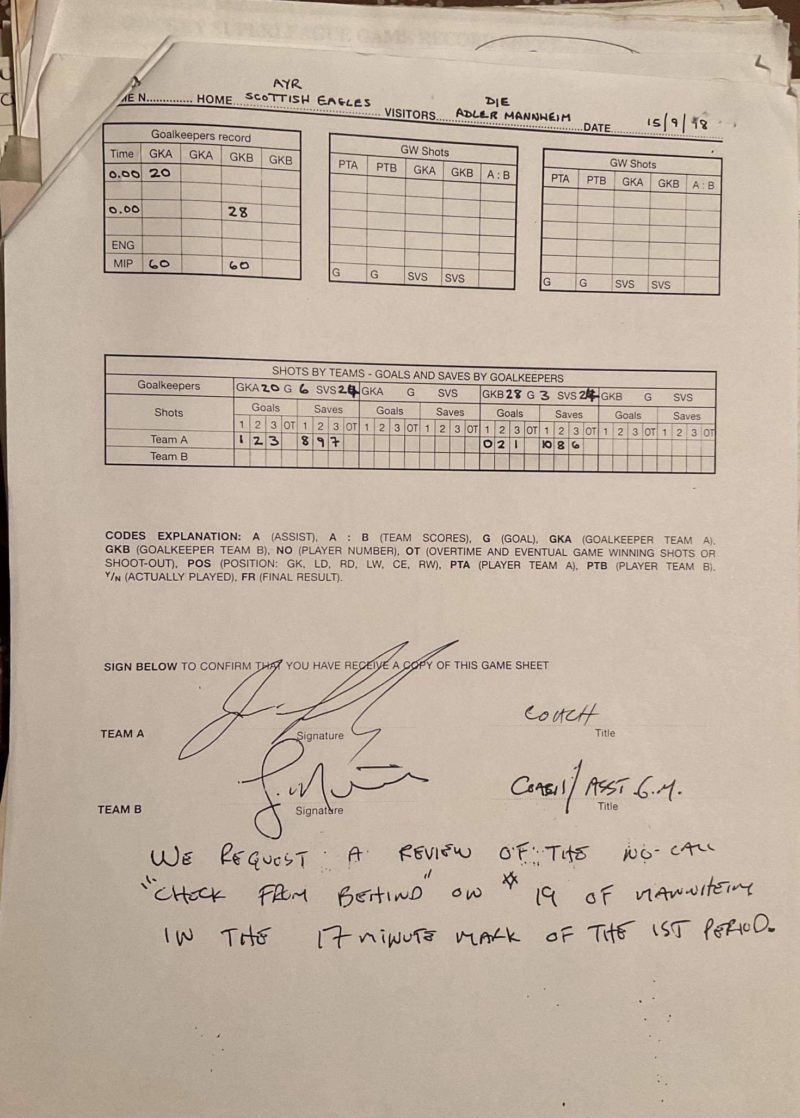 ME N............. HOME AYR SCOTTISH EAGLES VISITORS DIE ADLER MANNHEIM DATE 15/9/98
Goalkeepers record
Time GKA GKA GKB GKB
0.00 20
0.00 28
ENG
MIP 60 60
GW Shots
PTA PTB GKA GKB A : B
G G SVS SVS
GW Shots
PTA PTB GKA GKB A : B
G G SVS SVS
SHOTS BY TEAMS - GOALS AND SAVES BY GOALKEEPERS
Goalkeepers GKA 20 G 6 SVS 24 GKA G SVS GKB 28 G 3 SVS 24 GKB G SVS
Shots Goals Saves Goals Saves Goals Saves Goals Saves
1 2 3 OT 1 2 3 OT 1 2 3 OT 1 2 3 OT 1 2 3 OT 1 2 3 OT 1 2 3 OT 1 2 3 OT
Team A 1 2 3 8 9 7 0 2 1 10 8 6
Team B
CODES EXPLANATION: A (ASSIST), A : B (TEAM SCORES), G (GOAL), GKA (GOALKEEPER TEAM A),
GKB (GOALKEEPER TEAM B), NO (PLAYER NUMBER), OT (OVERTIME AND EVENTUAL GAME WINNING SHOTS OR
SHOOT-OUT), POS (POSITION: GK, LD, RD, LW, CE, RW), PTA (PLAYER TEAM A), PTB (PLAYER TEAM B).
Y/N (ACTUALLY PLAYED), FR (FINAL RESULT).
SIGN BELOW TO CONFIRM THAT YOU HAVE RECEIVE A COPY OF THIS GAME SHEET
COACH
TEAM A Signature Title
COACH/ ASST G.M.
TEAM B Signature Title
WE REQUEST A REVIEW OF THE NO-CALL
"CHECK FROM BEHIND" ON # 19 OF MANNHEIM
IN THE 17 MINUTE MARK OF THE 1ST PERIOD.